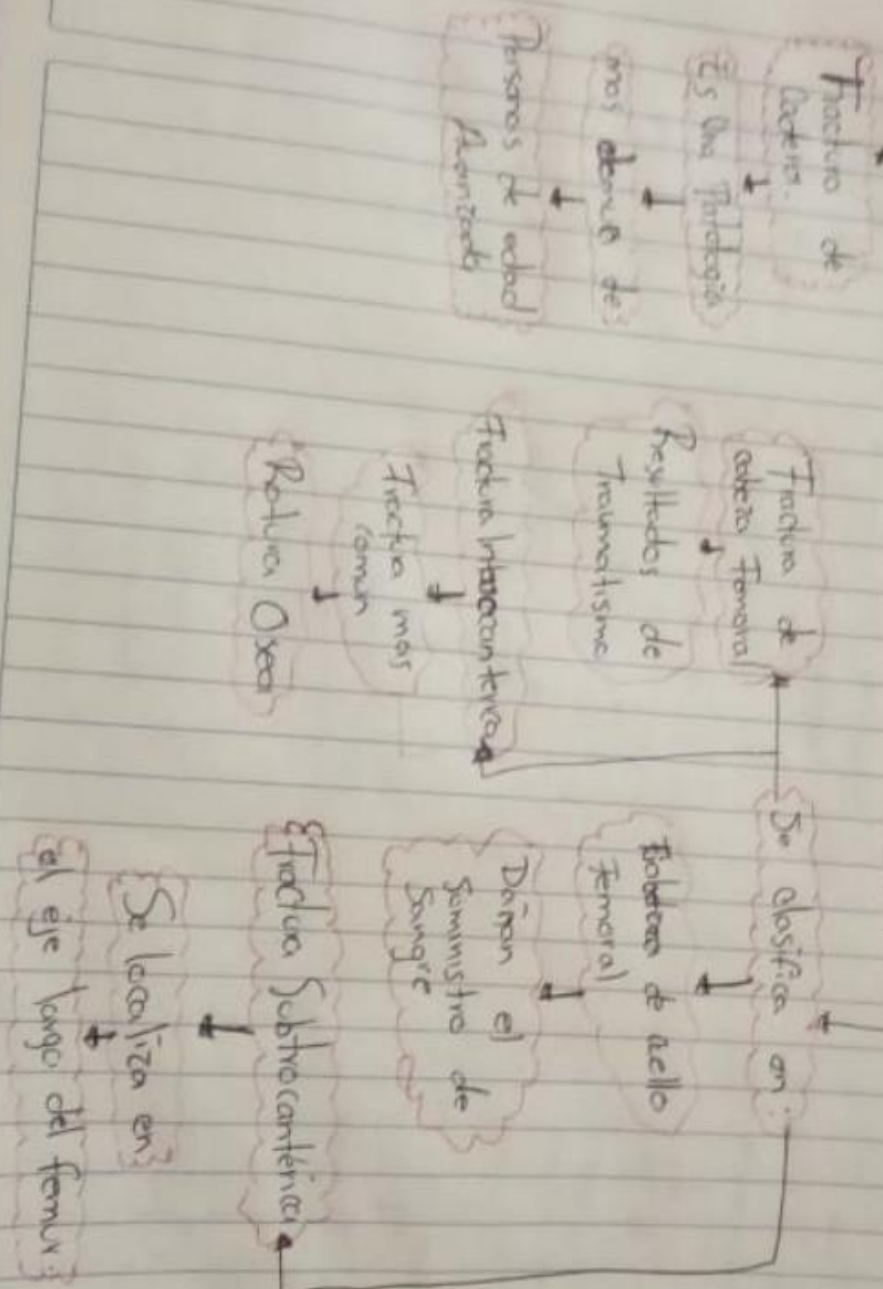 Fractura de
Cadera.
Es una Patología
mas
de
Personas de edad
Avanzada
Fractura de
cabeza Femoral
Resultados de
Traumatismo
Fractura
Fractura mas
común
Rotura Osea
Se clasifica en:
de cuello
Femoral
Dañan el
Suministro de
Sangre
Fractura Subtrocantérica
Se localiza en:
el eje largo del femur.